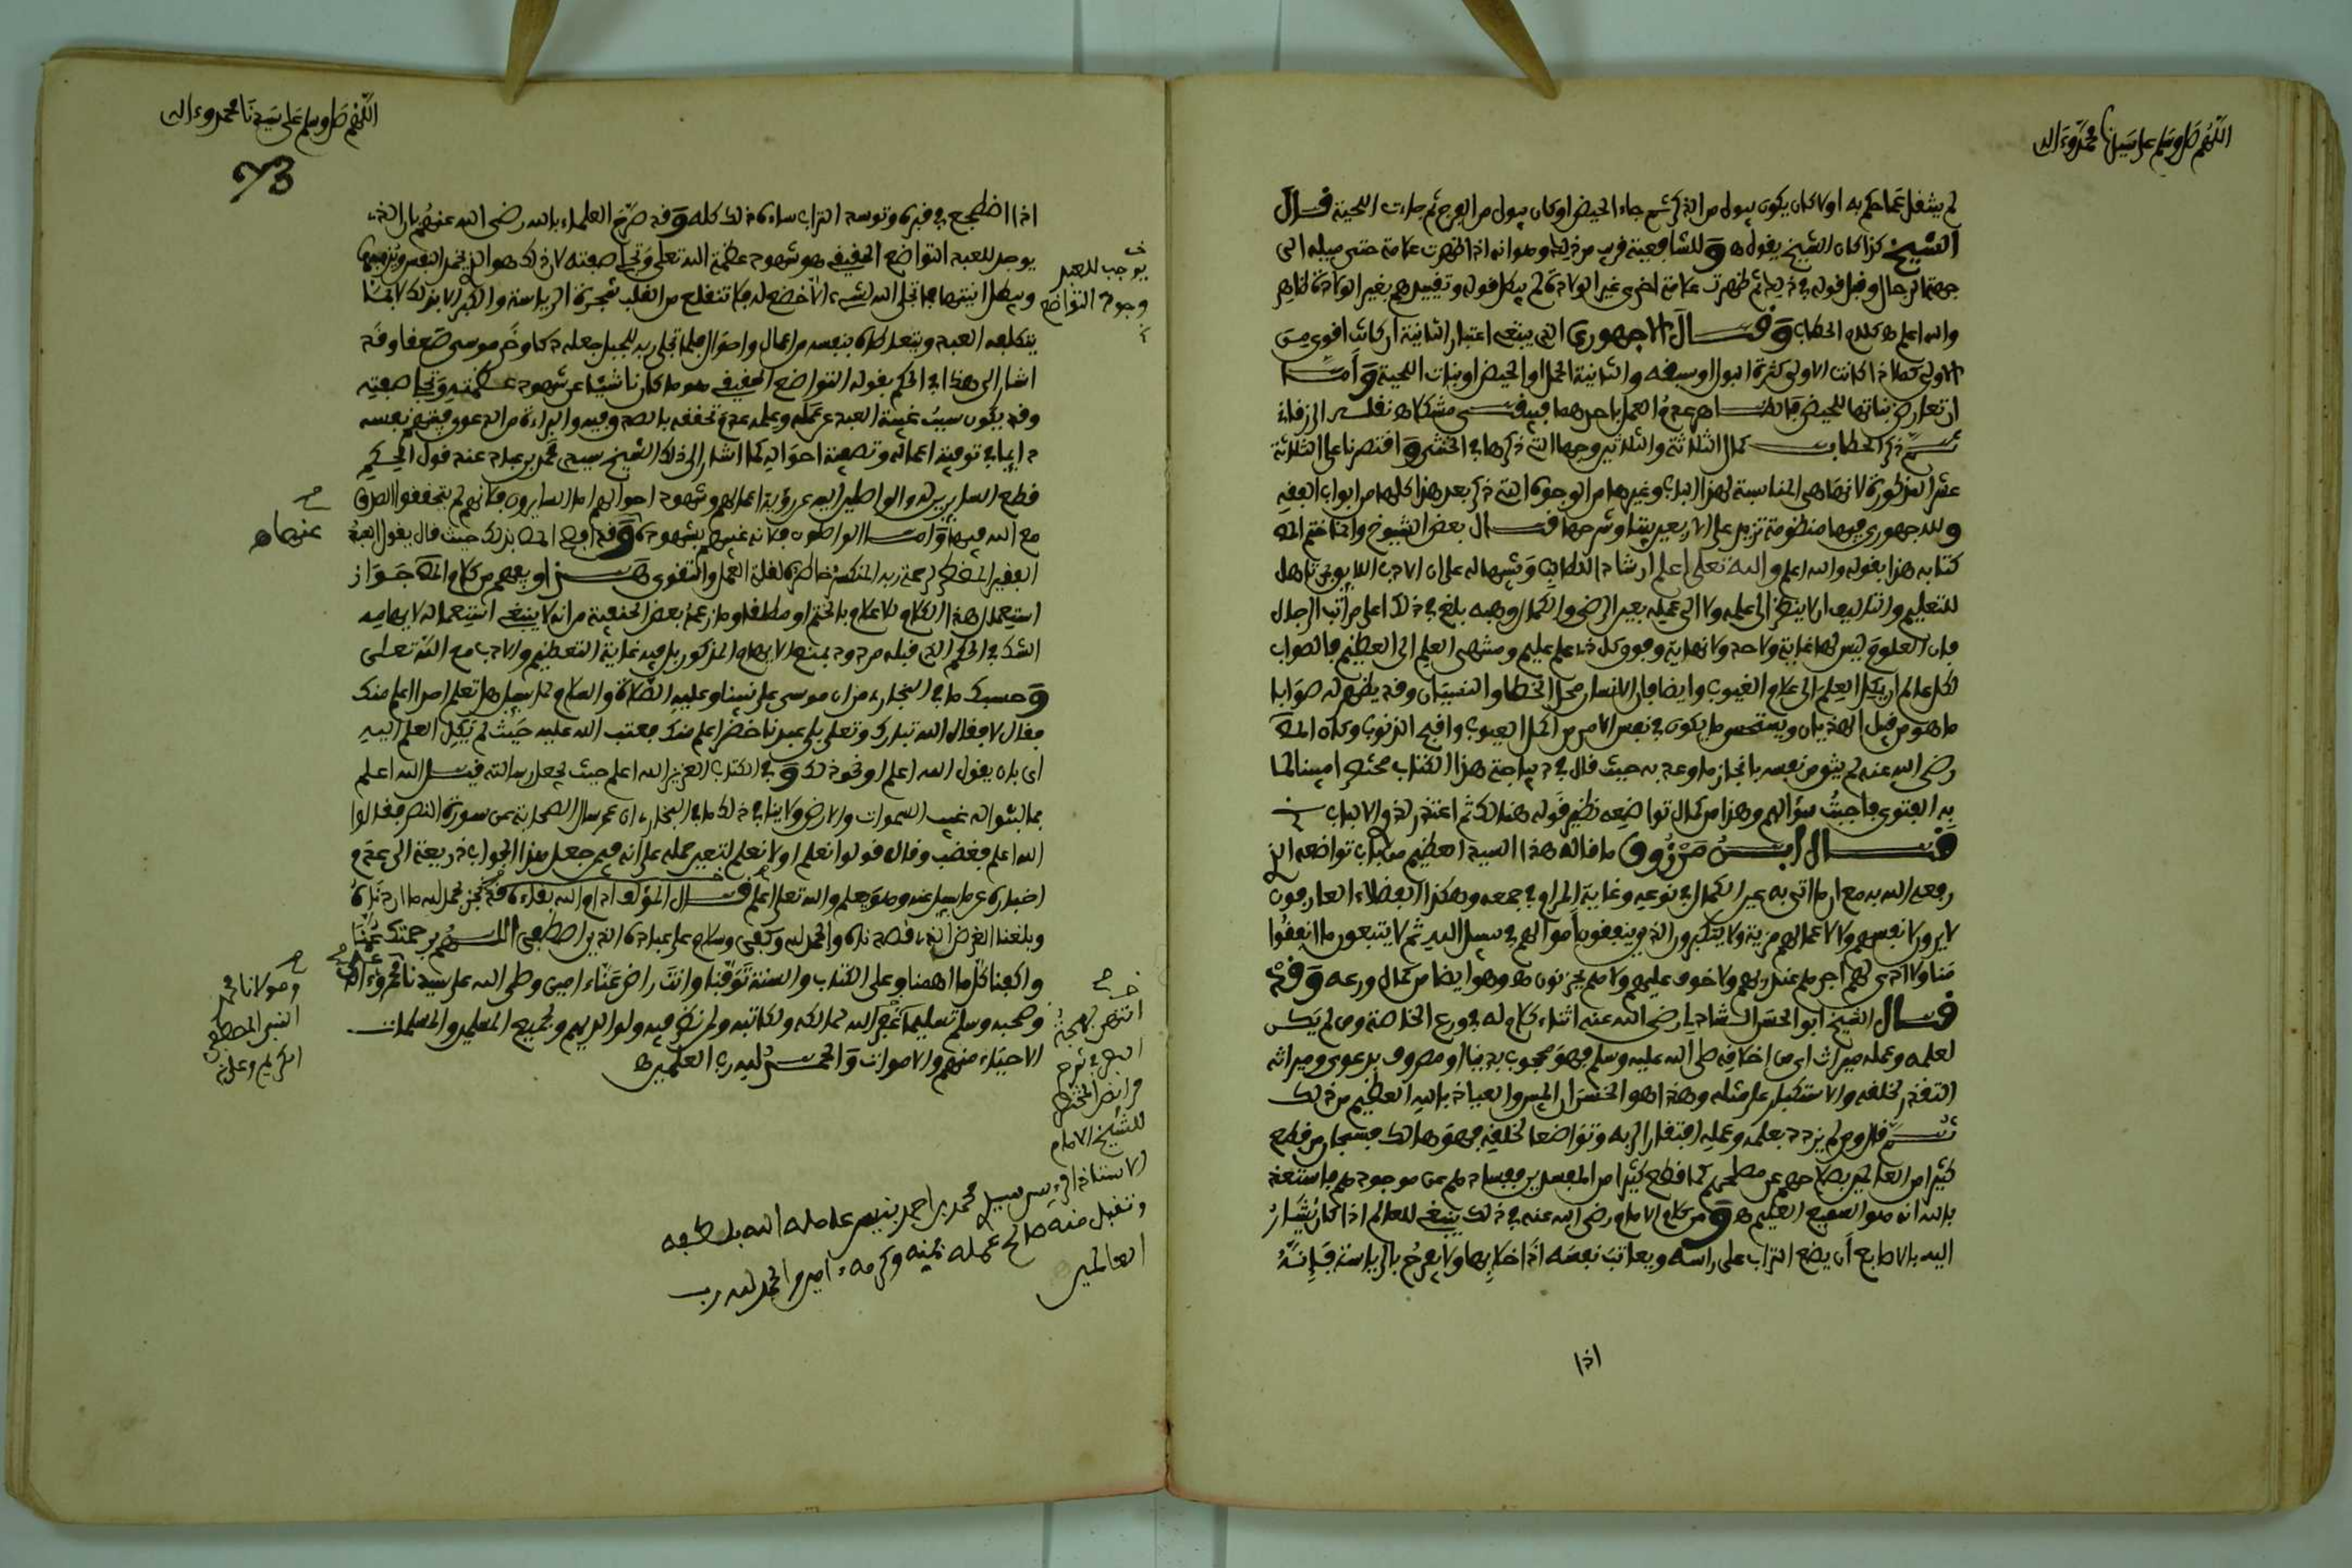 اللهم صل وسلم على سيدنا محمد وءاله
لم ينتقل عما حكم به اولا كان يكون يبول من الذكر ثم جاء الحيض او كان يبول من الفرج ثم جاءت اللحية قال
الشيخ كذا كان الشيخ يقول هـ وللشافعية قريب من ذلك وهو انه اذا ظهرت علامة حتى ميله الى
جهة الرجال وقبل قوله في ذلك ثم ظهرت علامة اخرى غير الولادة لم يبطل قوله وتقييدهم بغير الولادة ظاهر
والله اعلم هـ كلام الحطاب وقال الاجهوري الذي ينبغي اعتبار الثانية ان كانت اقوى من
الاولى كما اذا كانت الاولى كثرة البول او سبقه والثانية الحمل او الحيض او نبات اللحية وأما
ان تعارض نباتها للحيض فالظاهر عدم العمل باحدهما فيبقى مشكلا هـ نقله الزرقاني
ثم ذكر الحطاب كمال الثلاثة والثلاثين وجها التي ذكرها في الخنثى واقتصرنا على الثلاثة
عشر المذكورة لانها هي المناسبة لهذا الباب وغيرها من الوجوه التي ذكر بعد هذا كلها من ابواب الفقه
وللاجهوري فيها منظومة تزيد على الاربعين بيتا وشرحها قال بعض الشيوخ وانما ختم المص
كتابه هذا بقوله والله اعلم والله تعلى اعلم ارشادا للطالب وتنبيها له على ان الادب اللايق بمن تاهل
للتعليم والتاليف ان لا ينظر الى علمه ولا الى عمله بعين الرضى والكمال وهبه بلغ في ذلك اعلى مراتب الرجال
فان العلوم ليس لها غاية ولا حد ولا نهاية وفوق كل ذي علم عليم ومنتهى العلم الى العظيم فالصواب
لكل عالم ان يكل العلم الى علام الغيوب وايضا فان الانسان محل الخطا والنسيان وقد يظهر له صوابا
ما هو من قبيل الهذيان ويستحسن ما يكون في نفس الامر من اكمل العيوب واقبح الذنوب وكان المص
رضي الله عنه لم يثق من نفسه بانجاز ما وعد به حيث قال في ديباجة هذا الكتاب مختصرا مبينا لما
به الفتوى فاجبت سؤالهم وهذا من كمال تواضعه نظير قوله هنالك ثم اعتذر لذوي الالباب
قال ابن مرزوق ما قاله هذا السيد العظيم من باب تواضعه الذي
رفعه الله به مع ان ما اتى به عين الكمال في نوعه وغاية المرام في جمعه وهكذا الفضلاء العارفون
لا يرون لانفسهم ولا لاعمالهم مزية ولا يتكبرون الذين ينفقون أموالهم في سبيل الله ثم لا يتبعون ما انفقوا
منا ولا اذى لهم اجرهم عند ربهم ولا خوف عليهم ولا هم يحزنون هـ وهو ايضا من كمال ورعه وقد
قال الشيخ ابو الحسن الشاذلي رضي الله عنه اثناء كلام له في ورع الخاصة ومن لم يكن
لعلمه وعمله ميراث اي من اخلاقه صلى الله عليه وسلم فهو محجوب بدنيا او مصروف بدعوى وميراثه
التعزز لخلقه والاستكبار على مثله وهذا هو الخسران المبين والعياذ بالله العظيم من ذلك
ثم قال ومن لم يزدد بعلمه وعمله افتقارا لربه وتواضعا لخلقه فهو هالك فسبحان من قطع
كثيرا من الصالحين بصلاحهم عن مصلحهم كما قطع كثيرا من المفسدين بفسادهم عن موجدهم فاستعذ
بالله انه هو السميع العليم هـ ومن كلام الامام رضي الله عنه في ذلك ينبغي للعالم اذا كان يشار
اليه بالاصابع أن يضع التراب على راسه ويعاتب نفسه اذا خلا بها ولا يفرح بالرياسة فإنه
اذا
اللهم صل وسلم على سيدنا محمد وءاله
73
اذا اضطجع في قبره وتوسد التراب ساءه ذلك كله وقد صرح العلماء بالله رضي الله عنهم بان الذي
يوجد للعبد التواضع الحقيقي هو شهود عظمة الله تعلى وتجلي صفته لان ذلك هو الذي يخمد النفس ويذيبها
يوجب للعبد
وجود التواضع
ويبطل انيتها فما تجلى الله لشيء الا خضع له فلا تنقلع من القلب شجرة الرياسة والكبر الا بذلك لا بما
يتكلفه العبد ويتعاطاه بنفسه من اعمال واحوال فلما تجلى ربه للجبل جعله دكا وخر موسى صعقا وقد
اشار الى هذا في الحكم بقوله التواضع الحقيقي هو ما كان ناشئا عن شهود عظمته وتجلي صفته
وقد يكون سبب غيبة العبد عن عمله وعلمه عدم تحققه بالصدق فيه والبراءة من الدعوى فيتهم نفسه
دايما في توفية اعماله وتصفية احواله كما اشار الى ذلك الشيخ سيدي محمد بن عباد عند قول الحكم
قطع السايرين له والواصلين اليه عن رؤية اعمالهم وشهود احوالهم اما السايرون فلانهم لم يتحققوا الصدق
مع الله فيها وأما الواصلون فلانه غيبهم بشهوده عنها هـ وقد افصح المص بذلك حيث قال يقول العبد
الفقير المضطر لرحمة ربه المنكسر خاطره لقلة العمل والتقوى هـ او يفهم من كلام المص جواز
استعمال هذا الكلام للاعلام بالختم او مطلقا وما زعم بعض الحنفية من انه لا ينبغي استعماله لايهامه
الشك في الحكم الذي قبله مردود بمنع الايهام المذكور بل فيه غاية التعظيم والادب مع الله تعلى
وحسبك ما في البخاري من ان موسى على نبينا وعليه الصلاة والسلام لما سيل هل تعلم احدا اعلم منك
فقال لا فقال الله تبارك وتعلى بلى عبدنا خضر اعلم منك فعتب الله عليه حيث لم يكل العلم اليه
اي بان يقول الله اعلم او نحو ذلك وفي الكتاب العزيز الله اعلم حيث يجعل رسالته قل الله اعلم
بما لبثوا له غيب السموات والارض ولا ينافي ذلك ما في البخاري ان عمر سال الصحابة عن سورة النصر فقالوا
الله اعلم فغضب وقال قولوا نعلم او لا نعلم لتعين حمله على انه فيمن جعل هذا الجواب ذريعة الى عدم
اخباره عما سيل عنه وهو يعلم والله تعلى اعلم قال المؤلف ادام الله بقاءه قد نجز بحمد لله ما اردناه
وبلغنا الغرض الذي قصدناه والحمد لله وكفى وسلام على عباده الذين اصطفى اللهم برحمتك عمنا
واكفنا كل ما اهمنا وعلى الكتاب والسنة توفنا وانت راض عنا ءامين وصلى الله على سيدنا محمد وءاله
ومولانا محمد
النبي المصطفى
الكريم وعلى
وصحبه وسلم تسليما غفر الله لمالكه ولكاتبه ولمن نظر فيه ولوالديهم ولجميع المسلمين والمسلمات
الاحياء منهم والاموات والحمد لله رب العلمين هـ
انتهى بهجة
البصر في شرح
فرايض المختصر
للشيخ الامام
الاستاذ الريس سيدي محمد بن احمد بنيس عامله الله بلطفه
وتقبل منه صالح عمله بمنه وكرمه ءامين والحمد لله رب
العالمين